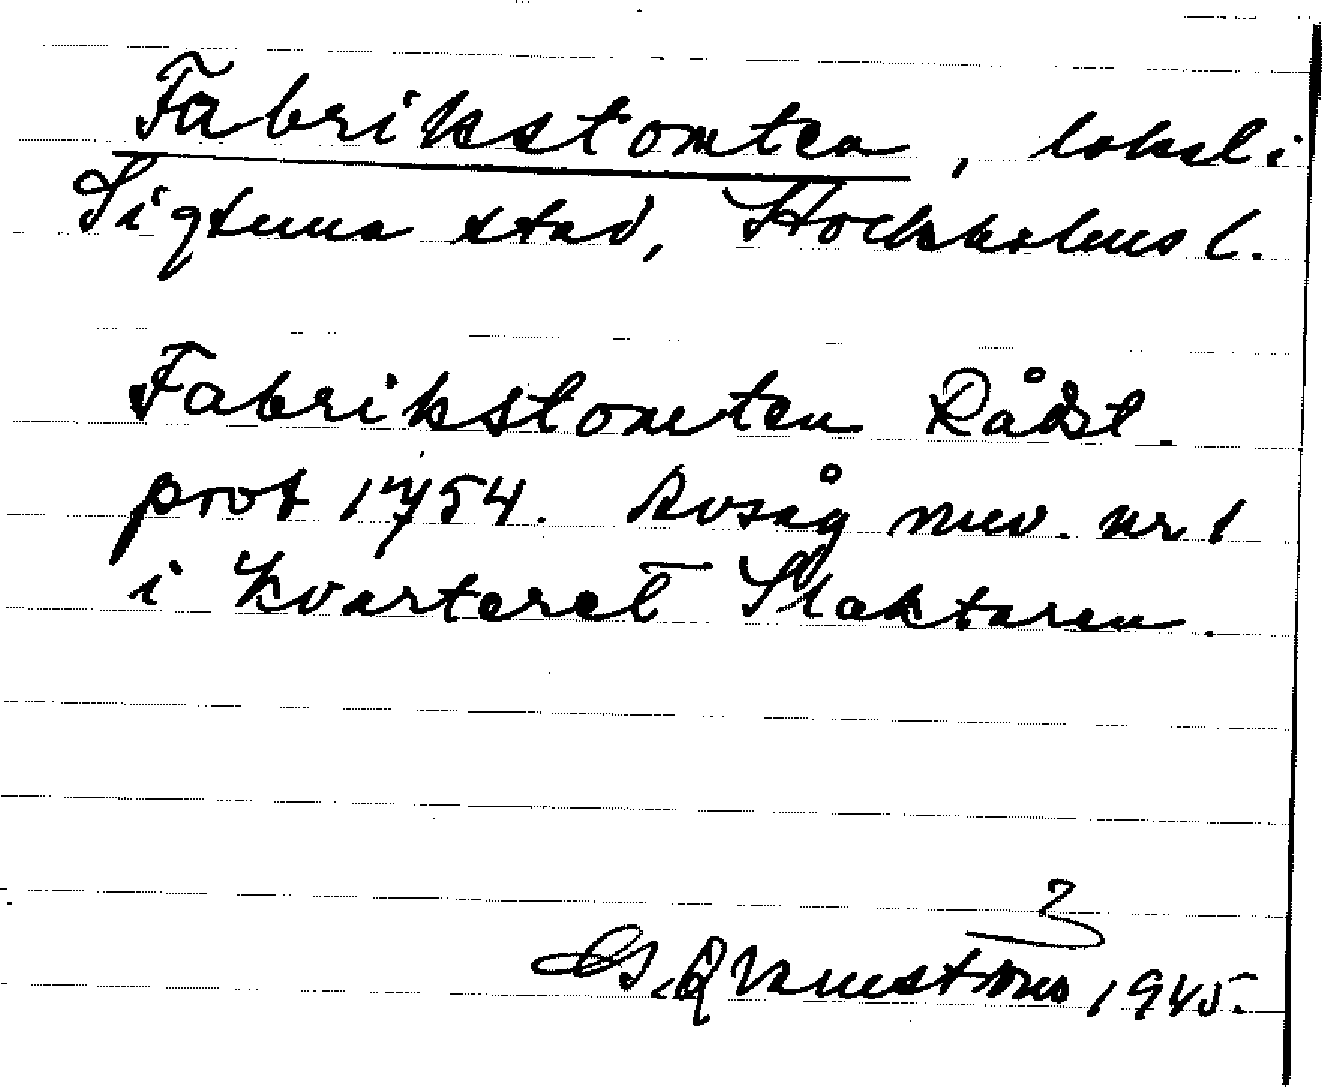 Fabrikstomten, lokal i
Sigtuna stad, Stockholms l.
Fabrikstomten Rådst.
prot 1754. Avsåg nuv. nr 1
i kvarteret Slaktaren.
G. Qvarnström 1945.